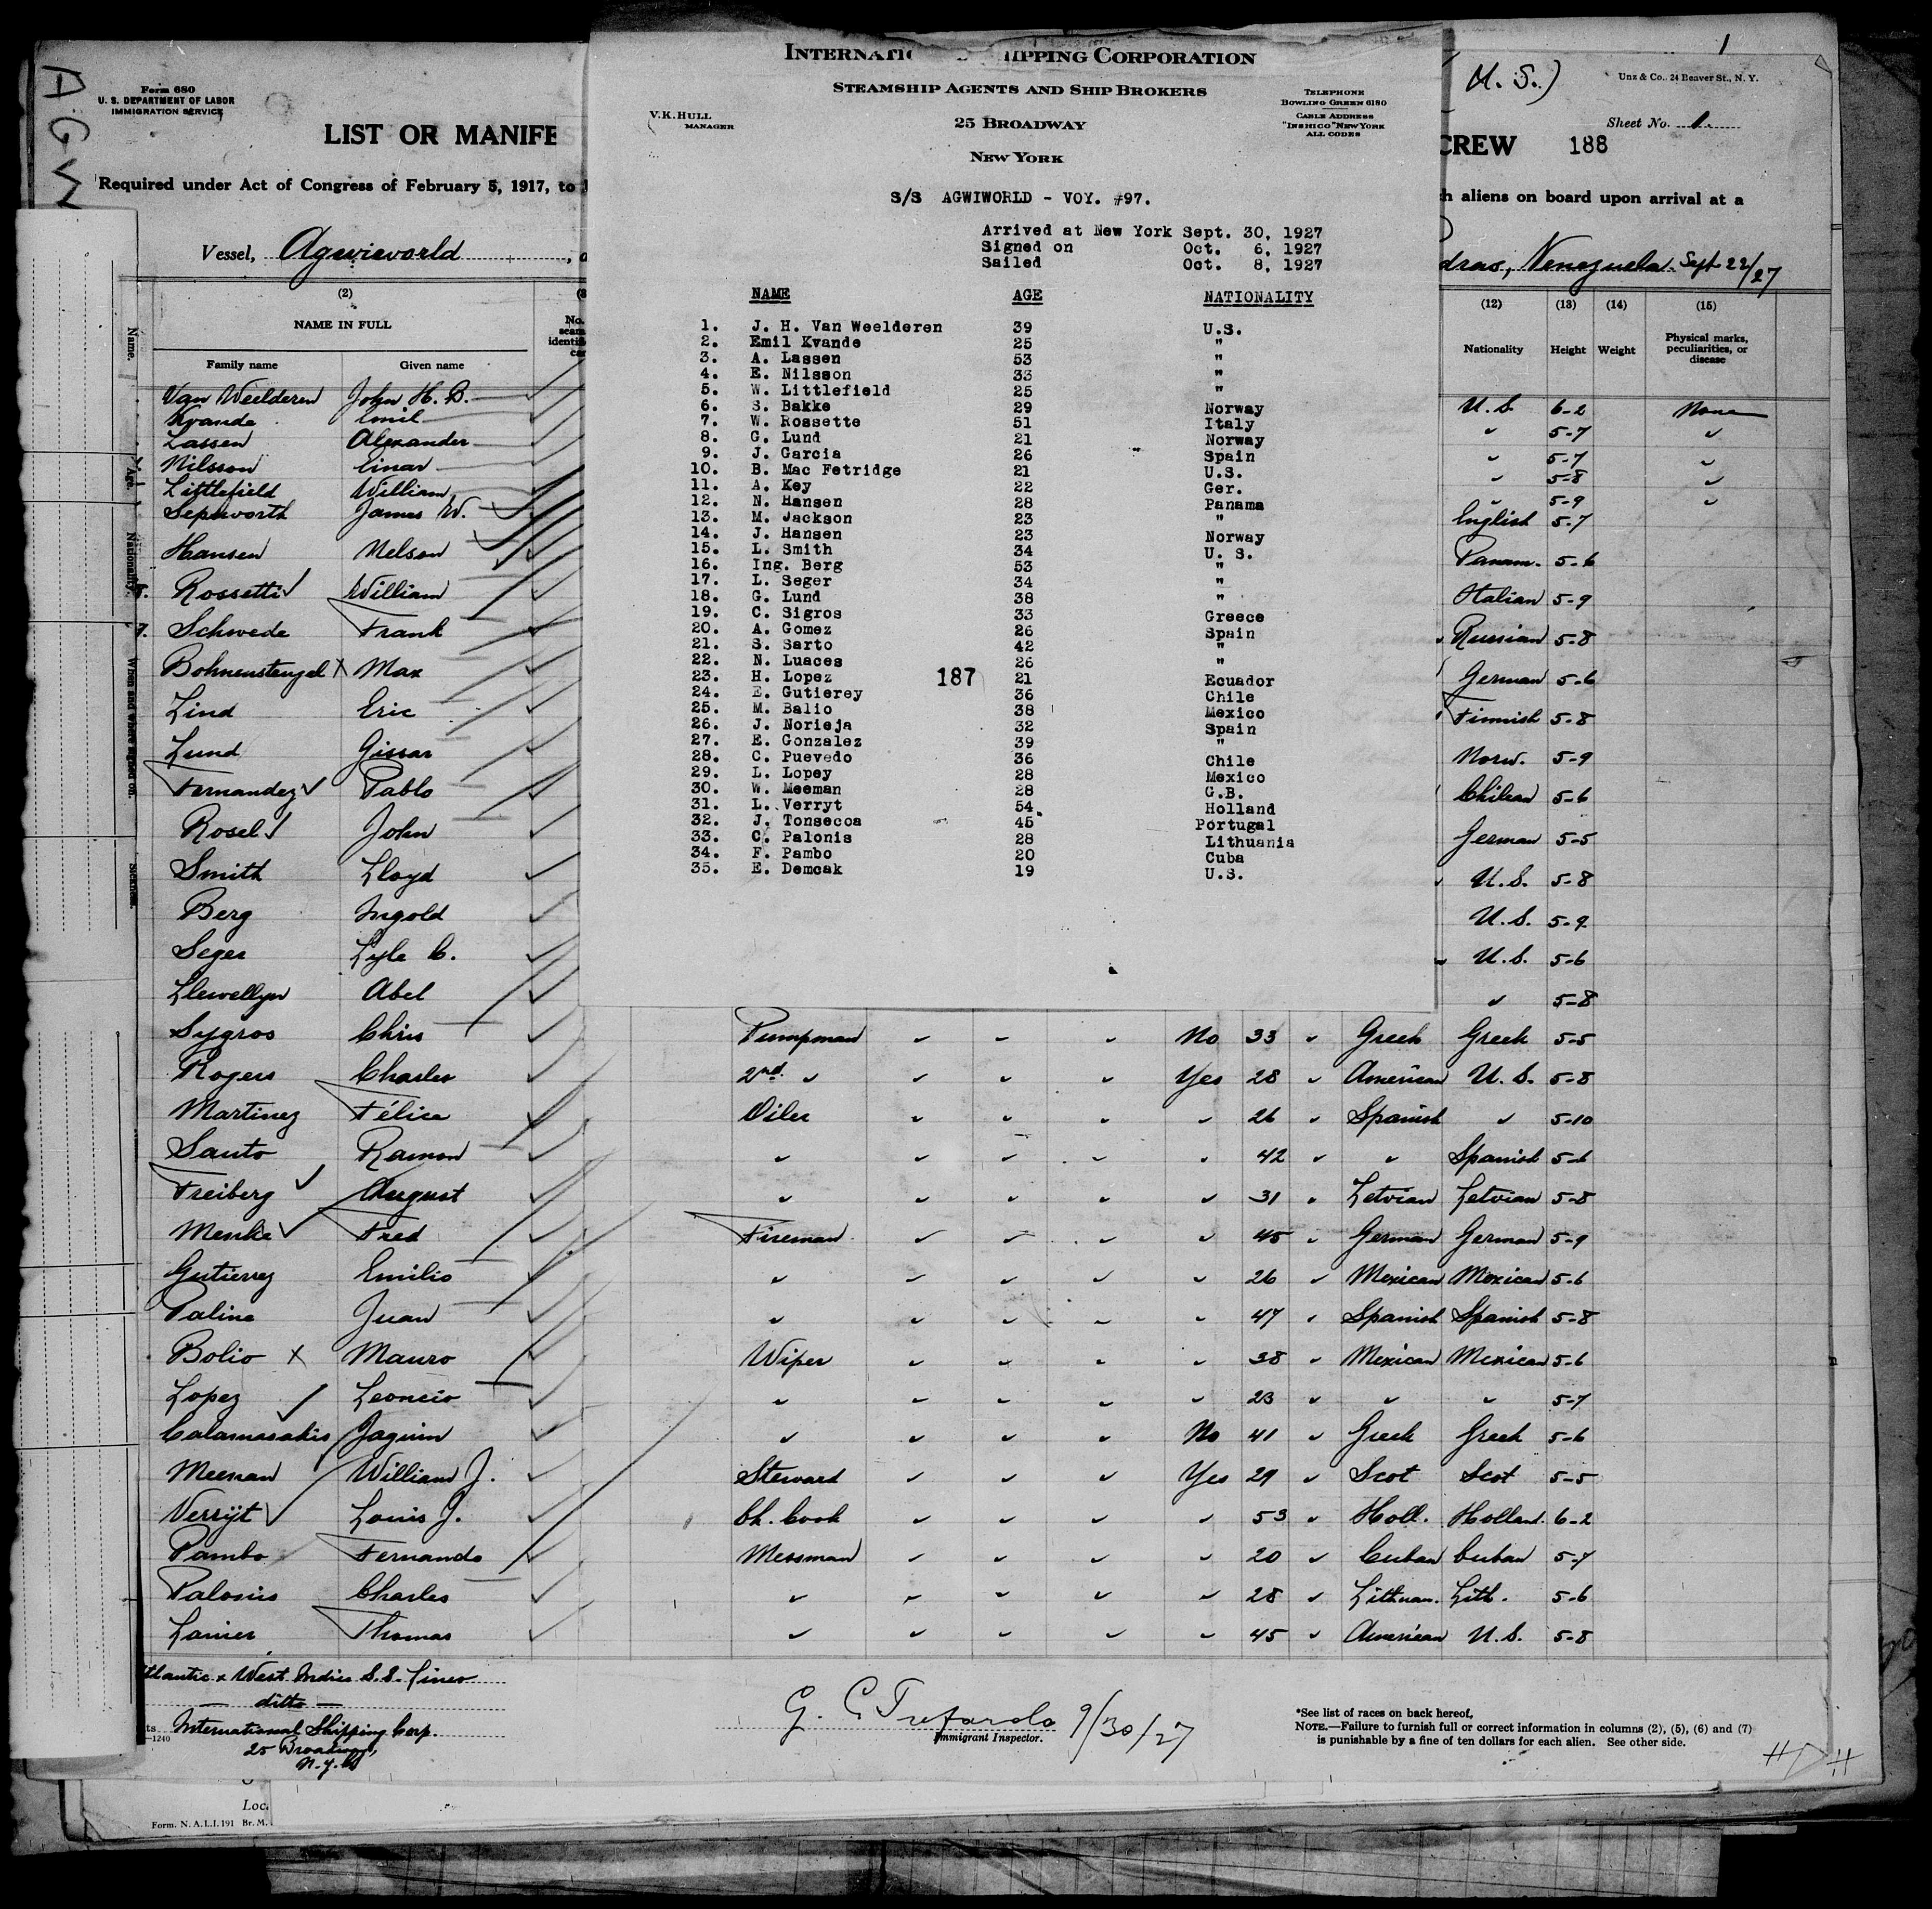 Form 680
U. S. DEPARTMENT OF LABOR
IMMIGRATION SERVICE
LIST OR MANIFE
Required under Act of Congress of February 5, 1917, to
Vessel, Agwieworld
(2)
NAME IN FULL
Family name Given name
INTERNATIO IPPING CORPORATION
STEAMSHIP AGENTS AND SHIP BROKERS
V.K.HULL
MANAGER
25 BROADWAY
NEW YORK
TELEPHONE
BOWLING GREEN 6180
CABLE ADDRESS
"INSHICO" NEW YORK
ALL CODES
S/S AGWIWORLD - VOY. #97.
Arrived at New York Sept. 30, 1927
Signed on Oct. 6, 1927
Sailed Oct. 8, 1927
NAME AGE NATIONALITY
1. J. H. Van Weelderen 39 U.S.
2. Emil Kvande 25 "
3. A. Lassen 53 "
4. E. Nilsson 33 "
5. W. Littlefield 25 "
6. S. Bakke 29 Norway
7. W. Rossette 51 Italy
8. G. Lund 21 Norway
9. J. Garcia 26 Spain
10. B. Mac Fetridge 21 U.S.
11. A. Key 22 Ger.
12. N. Hansen 28 Panama
13. M. Jackson 23 "
14. J. Hansen 23 Norway
15. L. Smith 34 U. S.
16. Ing. Berg 53 "
17. L. Seger 34 "
18. G. Lund 38 "
19. C. Sigros 33 Greece
20. A. Gomez 26 Spain
21. S. Sarto 42 "
22. N. Luaces 26 "
23. H. Lopez 187 21 Ecuador
24. E. Gutierey 36 Chile
25. M. Balio 38 Mexico
26. J. Norieja 32 Spain
27. E. Gonzalez 39 "
28. C. Puevedo 36 Chile
29. L. Lopey 28 Mexico
30. W. Meeman 28 G.B.
31. L. Verryt 54 Holland
32. J. Tonsecoa 45 Portugal
33. C. Palonis 28 Lithuania
34. F. Pambo 20 Cuba
35. E. Demcak 19 U.S.
1
U. S.)
Unz & Co., 24 Beaver St., N. Y.
Sheet No. 1.
CREW 188
h aliens on board upon arrival at a
dras, Venezuela. Sept 22/27
(12) (13) (14) (15)
Nationality Height Weight Physical marks, peculiarities, or disease
Van Weelderen John H. B. U.S. 6-2 None
Kvande Emil 5-7
Lassen Alexander 5-7
Nilsson Einar 5-8
Littlefield William 5-9
Sepworth James W. English 5-7
Hansen Nelson Panam. 5-6
Rossetti William Italian 5-9
Schwede Frank Russian 5-8
Bohnenstengel Max German 5-6
Lind Eric Finnish 5-8
Lund Gissar Norw. 5-9
Fernandez Pablo Chilean 5-6
Rosel John German 5-5
Smith Lloyd U.S. 5-8
Berg Ingold U.S. 5-9
Seger Lyle C. U.S. 5-6
Llewellyn Abel 5-8
Sygros Chris Pumpman No 33 Greek Greek 5-5
Rogers Charles 2nd Yes 28 American U.S. 5-8
Martinez Félice Oiler 26 Spanish 5-10
Santo Ramon 42 Spanish 5-6
Freiberg August 31 Letvian Letvian 5-8
Menke Fred Fireman 45 German German 5-9
Gutierrez Emilio 26 Mexican Mexican 5-6
Paline Juan 47 Spanish Spanish 5-8
Bolio X Mauro Wiper 38 Mexican Mexican 5-6
Lopez Leoncio 23 5-7
Calamarakis Jaquim No 41 Greek Greek 5-6
Meenan William J. Steward Yes 29 Scot Scot 5-5
Verrijt Louis J. Ch. Cook 53 Holl. Holland. 6-2
Pambo Fernando Messman 20 Cuban Cuban 5-7
Palosius Charles 28 Lithuan. Lith. 5-6
Lanier Thomas 45 American U.S. 5-8
tlantic & West Indies S.S. Lines
— ditto —
International Shipping Corp.
25 Broadway,
N.Y.C.
9/30/27
Immigrant Inspector.
*See list of races on back hereof.
NOTE.—Failure to furnish full or correct information in columns (2), (5), (6) and (7)
is punishable by a fine of ten dollars for each alien. See other side.
Loc.
Form. N. A. L. I. 191 Br. M.
Name.
Age.
Nationality.
When and where signed on.